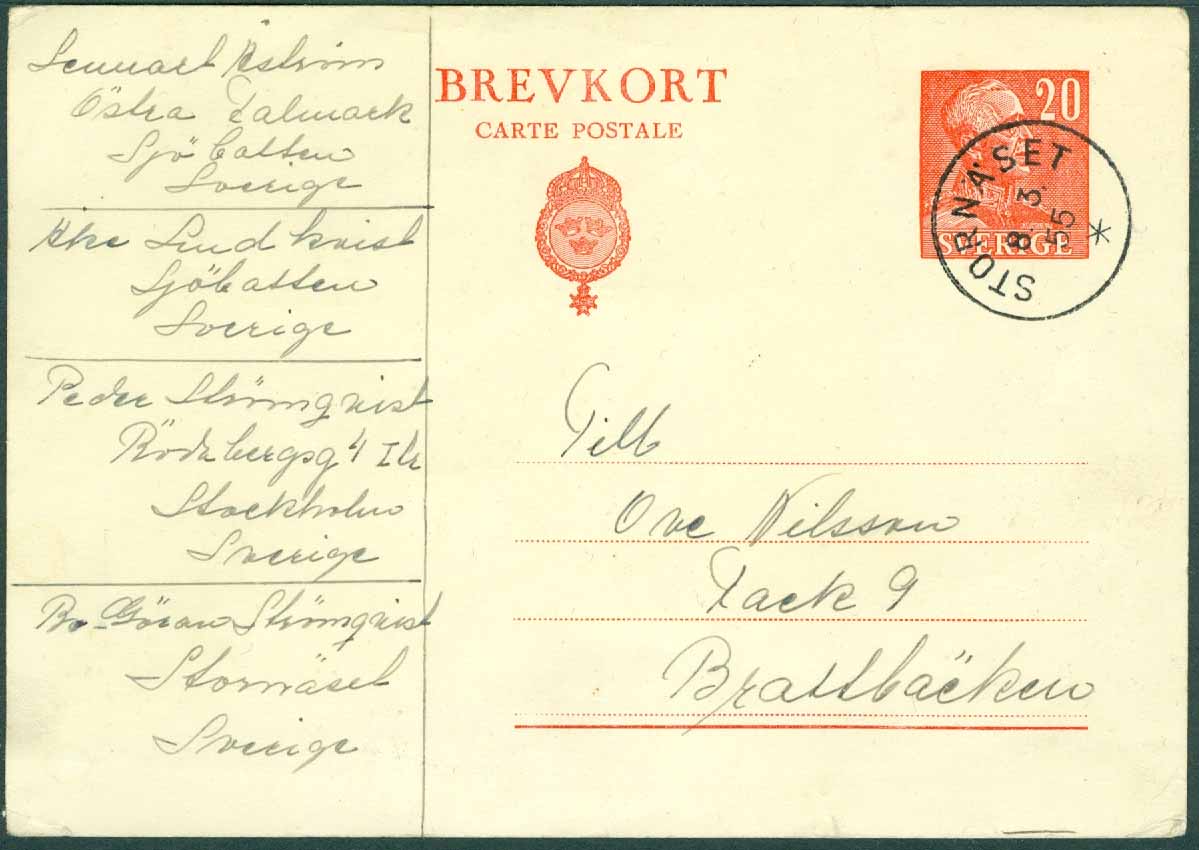 Lennart Åström
Östra Falmark
Sjöbotten
Sverige
Åke Lindkvist
Sjöbotten
Sverige
Peder Strömqvist
Rödabergsg 4 I
Stockholm
Sverige
Bo-Göran Strömqvist
Stornäset
Sverige
BREVKORT
CARTE POSTALE
20
SVERIGE
STORNÄSET
8 3
55
*
Till
Ove Nilsson
Fack 9
Brattbäcken